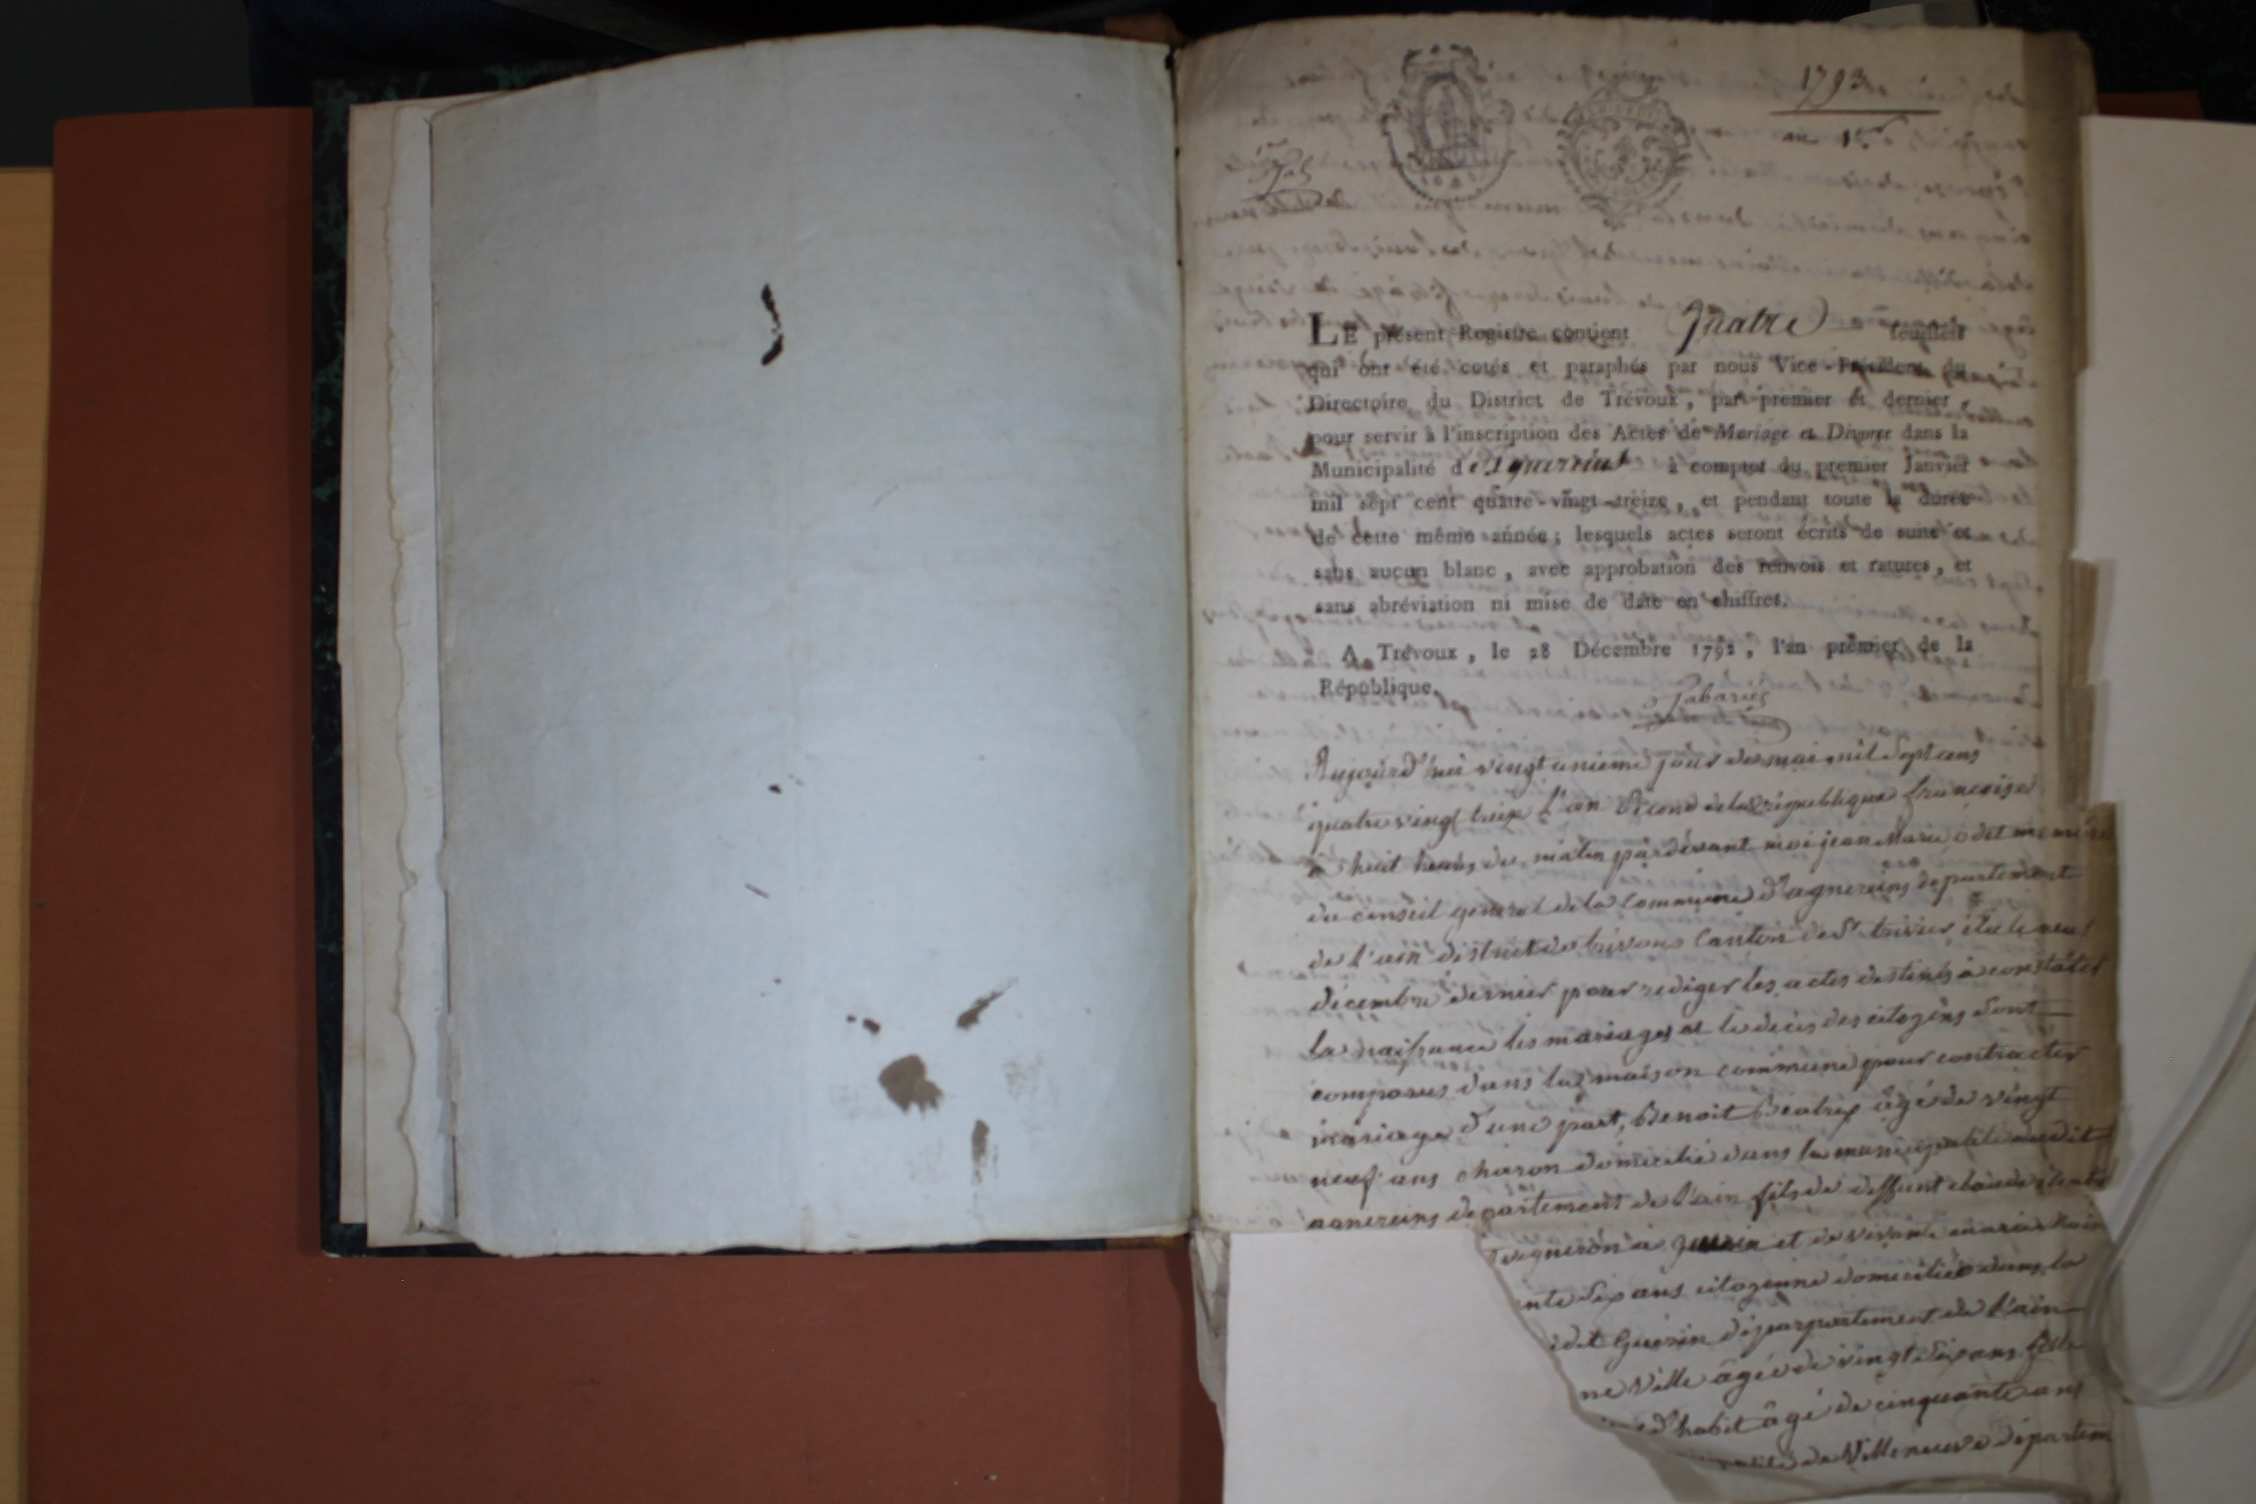 1793
an 1er
LE présent Registre contient Quatre feuillets
qui ont été cotés et paraphés par nous Vice-Président du
Directoire du District de Trévoux, par premier et dernier,
pour servir à l'inscription des Actes de Mariage et Divorce dans la
Municipalité d'agnereins à compter du premier Janvier
mil sept cent quatre-vingt-treize, et pendant toute la durée
de cette même année; lesquels actes seront écrits de suite et
sans aucun blanc, avec approbation des renvois et ratures, et
sans abréviation ni mise de date en chiffres.
A Trévoux, le 28 Décembre 1792, l'an premier de la
République.
Jabariés
Aujourd'hui vingt unieme jour de mai mil sept cens
quatre vingt treize l'an Second de la république françoise
à huit heures du matin pardevant moi jean Marie odet membre
du conseil general de la Commune d'agnereins departement
de l'ain district de trévoux Canton de St trivier élu le neuf
décembre dernier pour rediger les actes destinés à constater
la naissance les mariages et le décès des citoyens sont
comparus dans la maison commune pour contracter
mariage d'une part, Benoit Béatrix âgé de vingt
neuf ans charon domicilié dans la municipalité dudit
agnereins departement de l'ain fils de deffunt claude
vigneron à et de vivante marie
ente six ans citoyenne domiciliée dans la
dit Guérin département de l'ain
ne Ville âgée de vingt six ans fille
d'habit âgé de cinquante ans
de Villeneuve départem